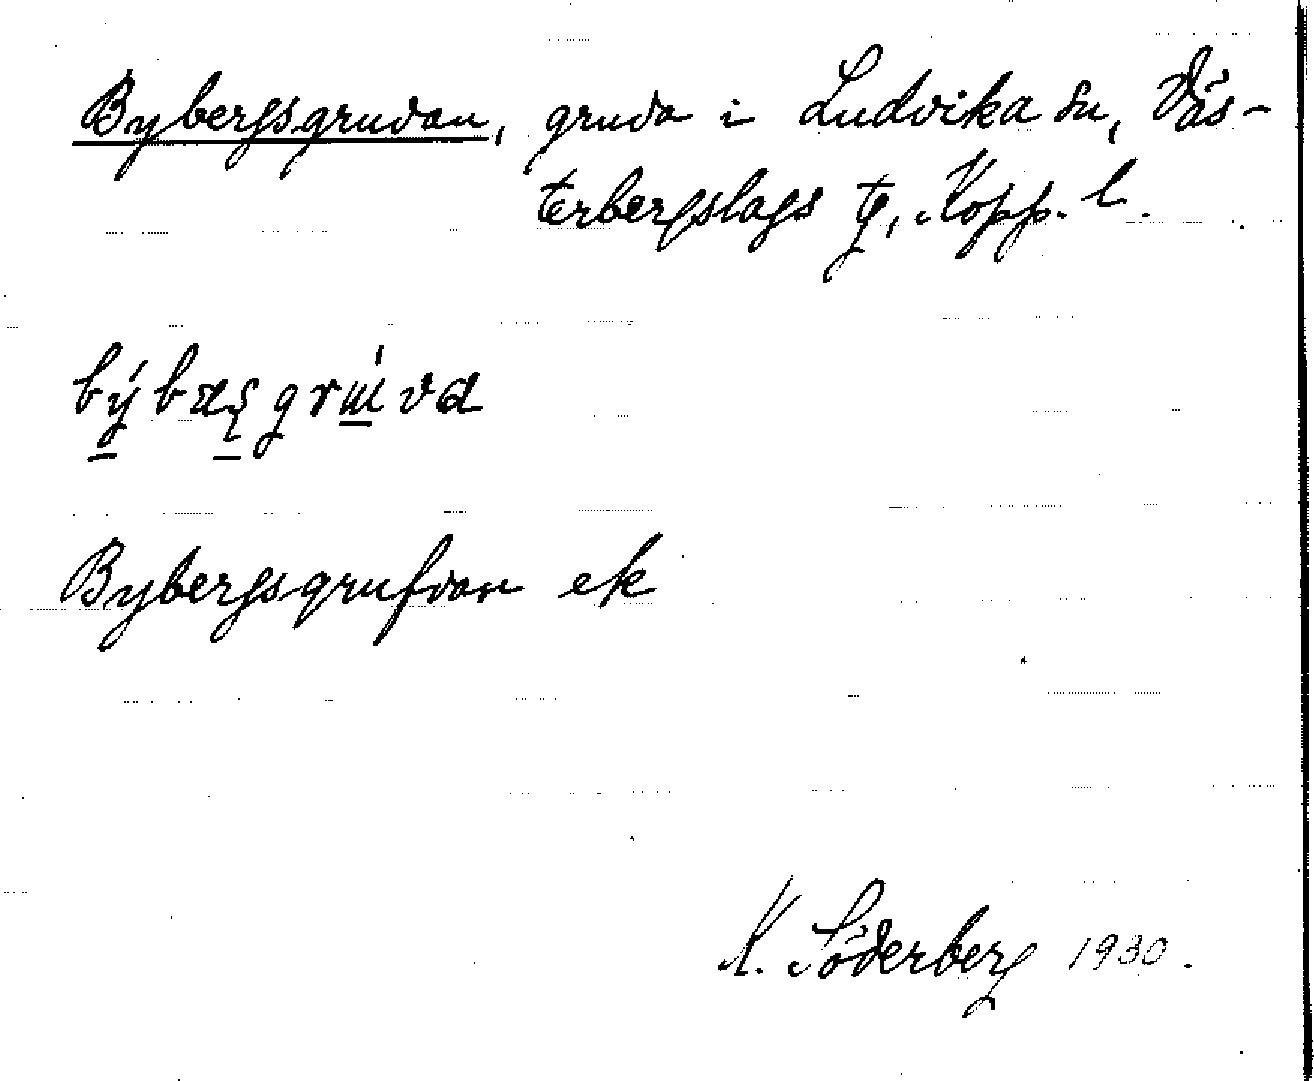 Bybergsgruvan, gruva i Ludvika sn, Väs-
terbergslags tg, Kopp. l.
býbæʂgrɯ́va
Bybergsgrufvan ek
K. Söderberg 1930.